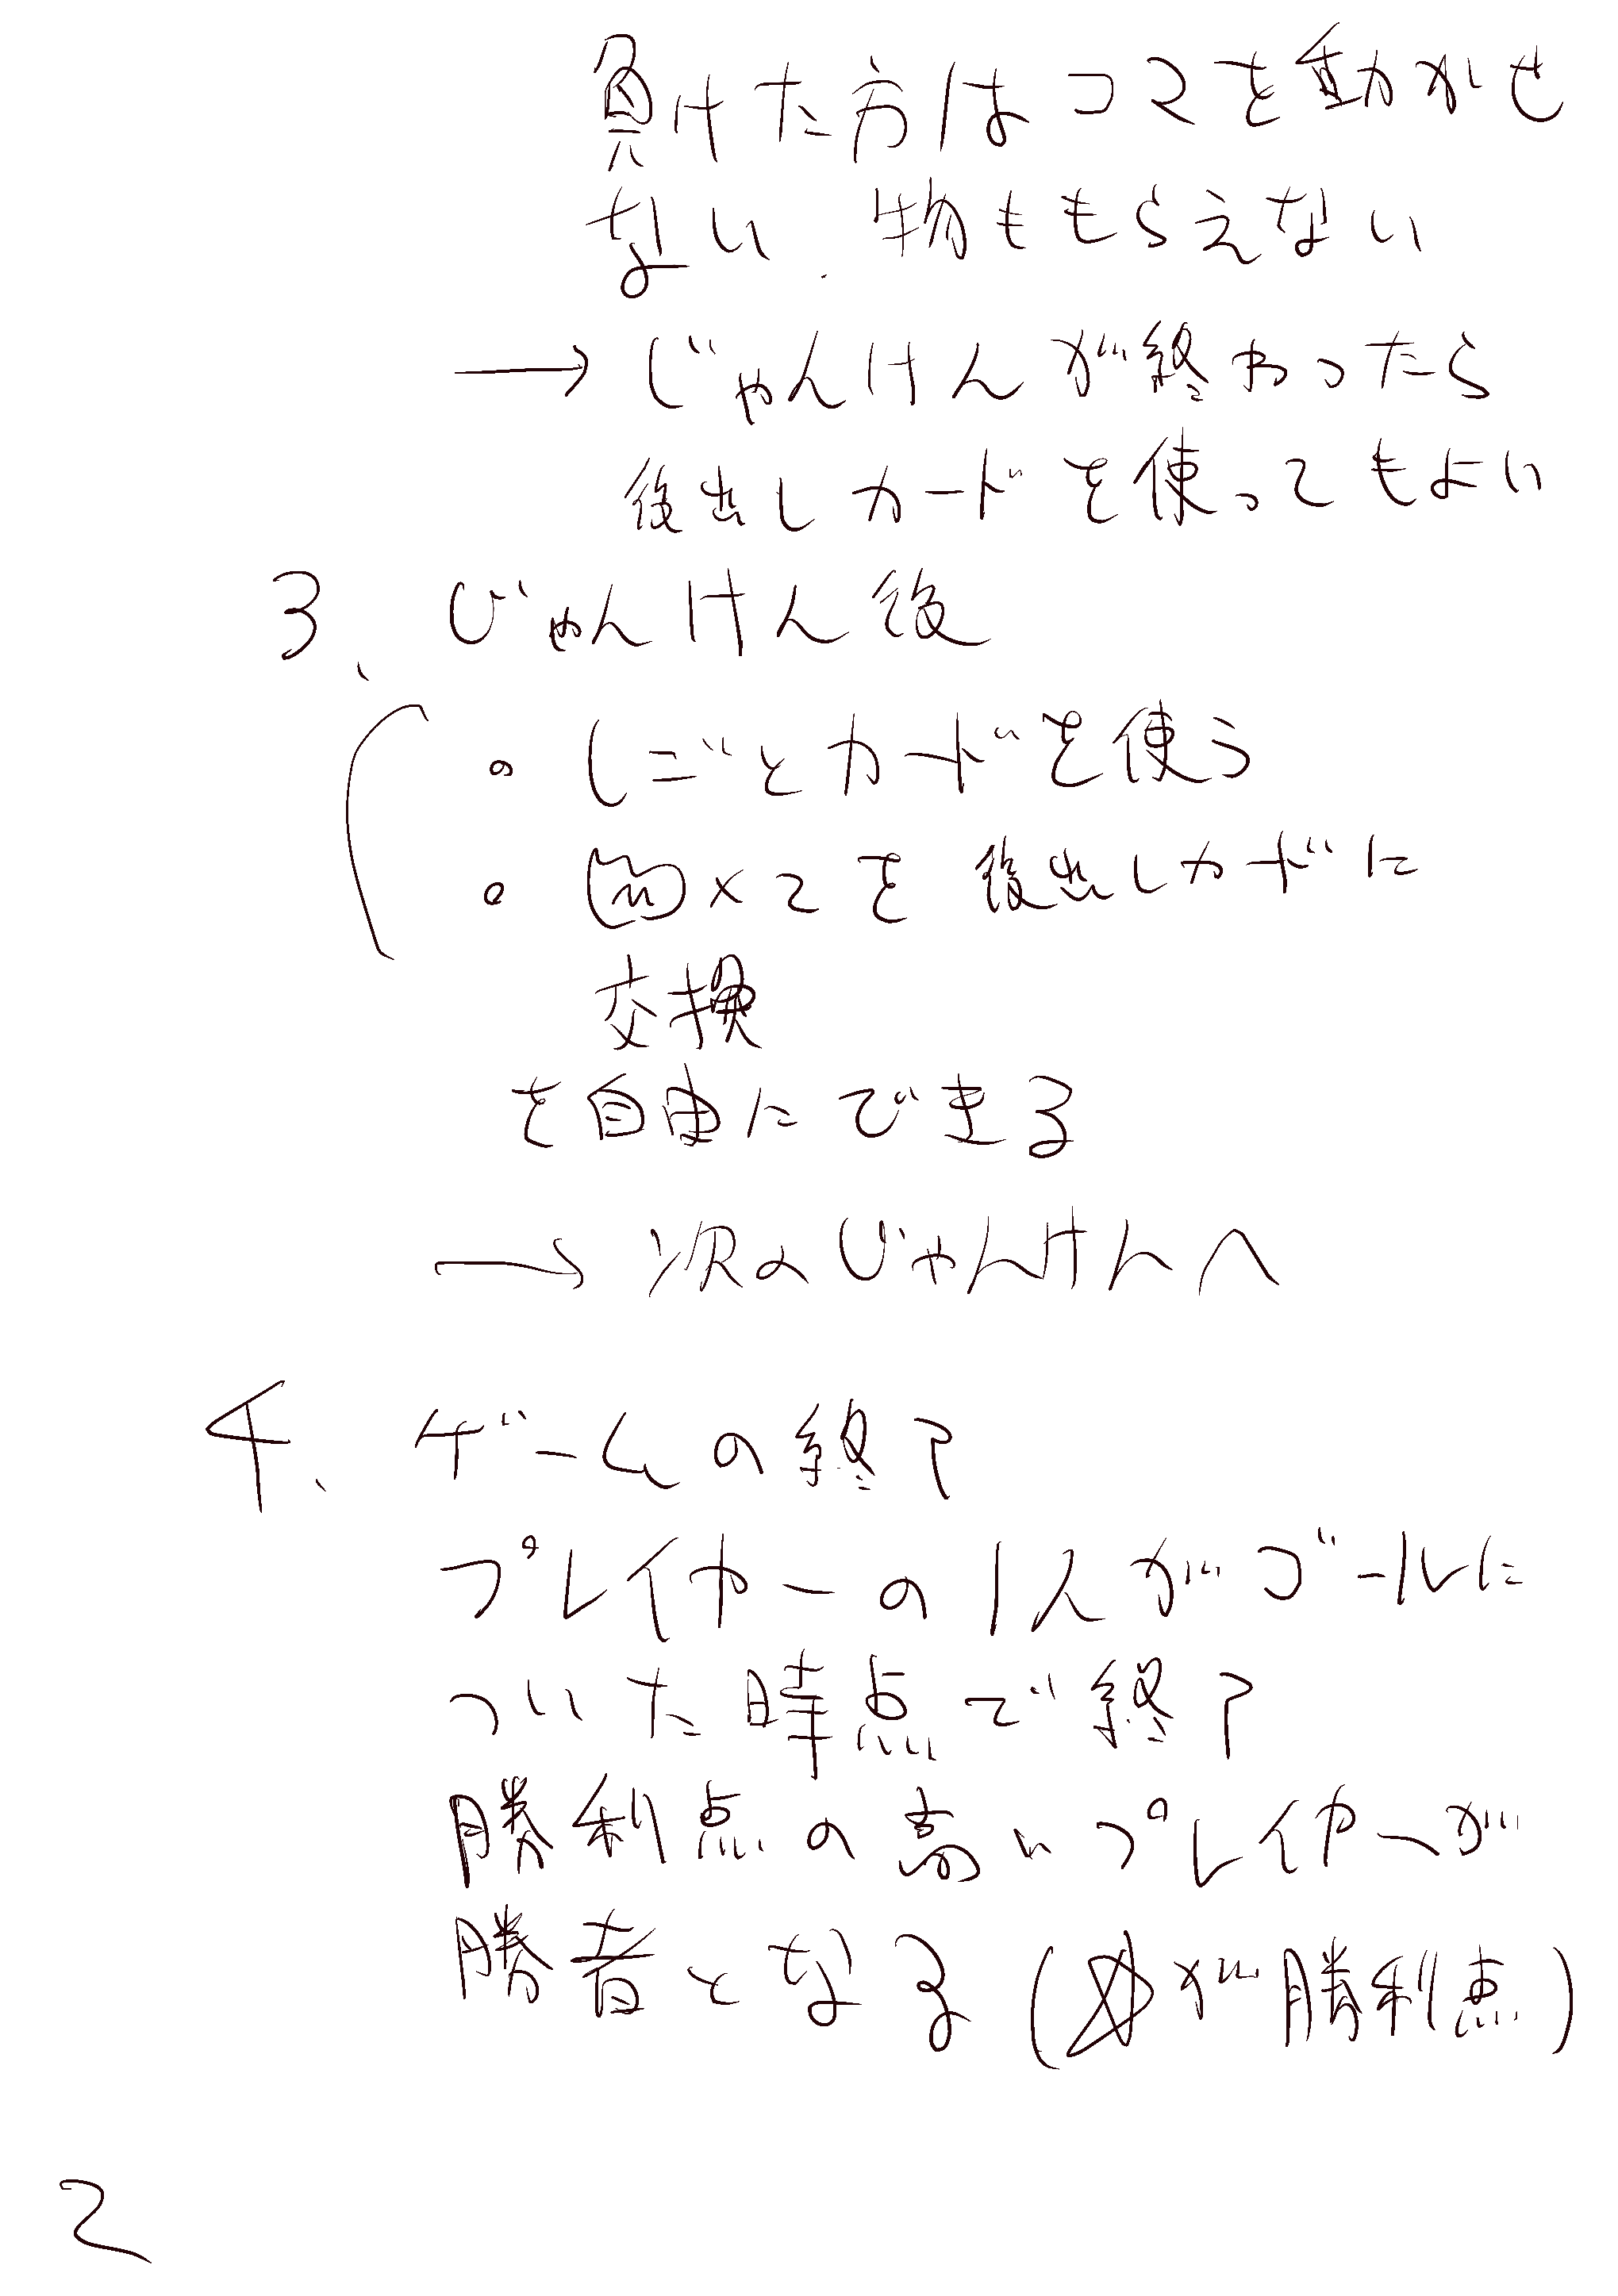 負けた方はコマを動かせ
ない. 物ももらえない
→ じゃんけんが終わったら
後出しカードを使ってもよい
3、じゃんけん後
・しごとカードを使う
・×2を後出しカードに
交換
を自由にできる
→ 次のじゃんけんへ
4、ゲームの終了
プレイヤーの1人がゴールに
ついた時点で終了
勝利点の高いプレイヤーが
勝者となる(☆が勝利点)
2